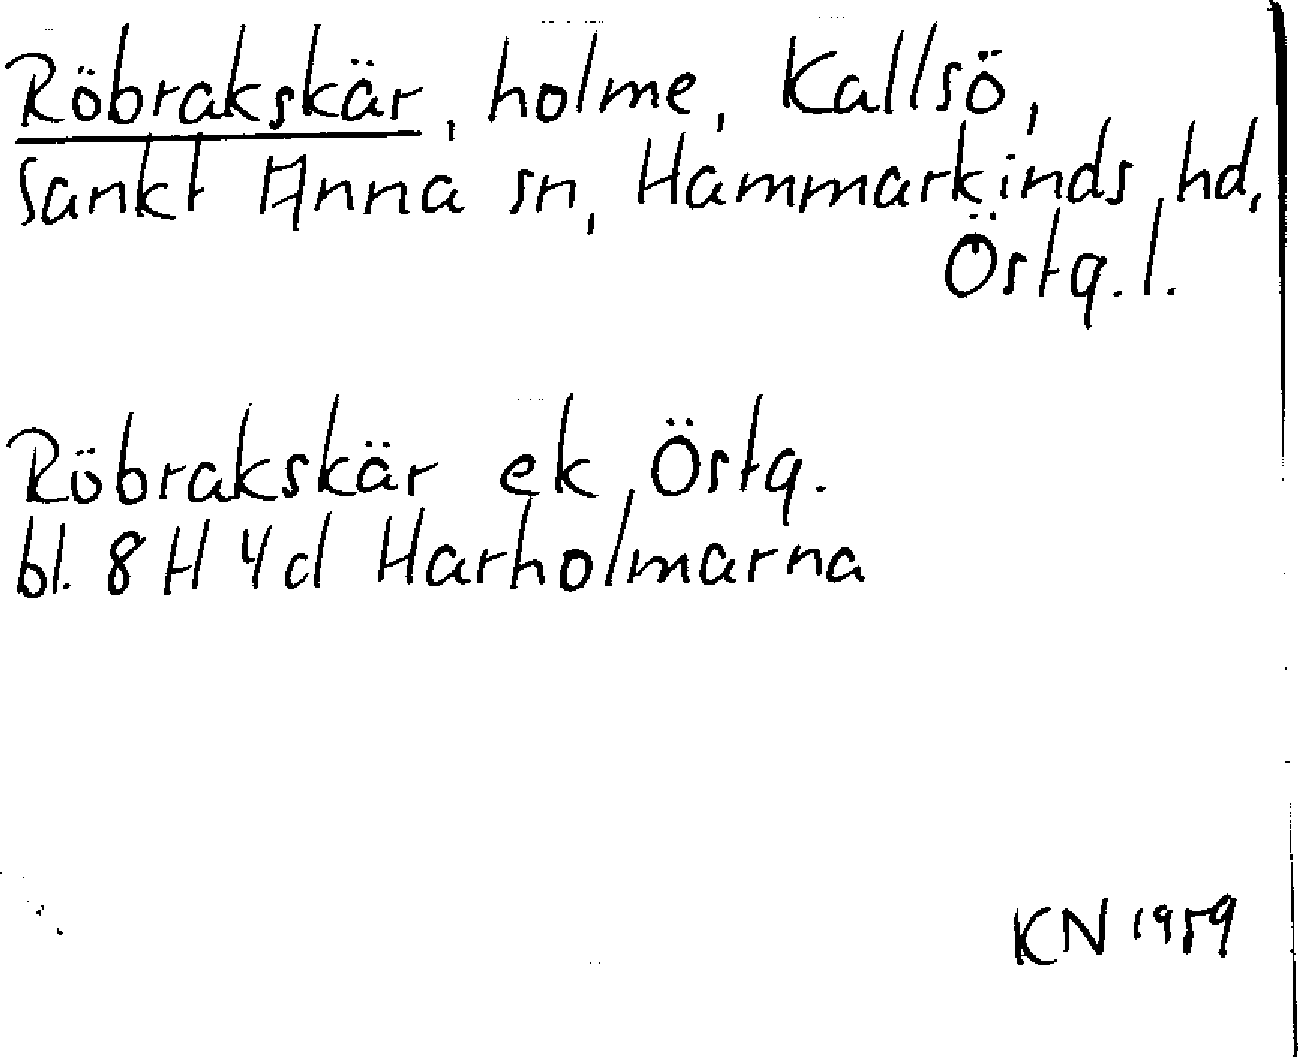 Röbrakskär, holme, Kallsö,
Sankt Anna sn, Hammarkinds hd,
Östg.l.
Röbrakskär ek Östg.
bl. 8H 4d Harholmarna
KN 1959